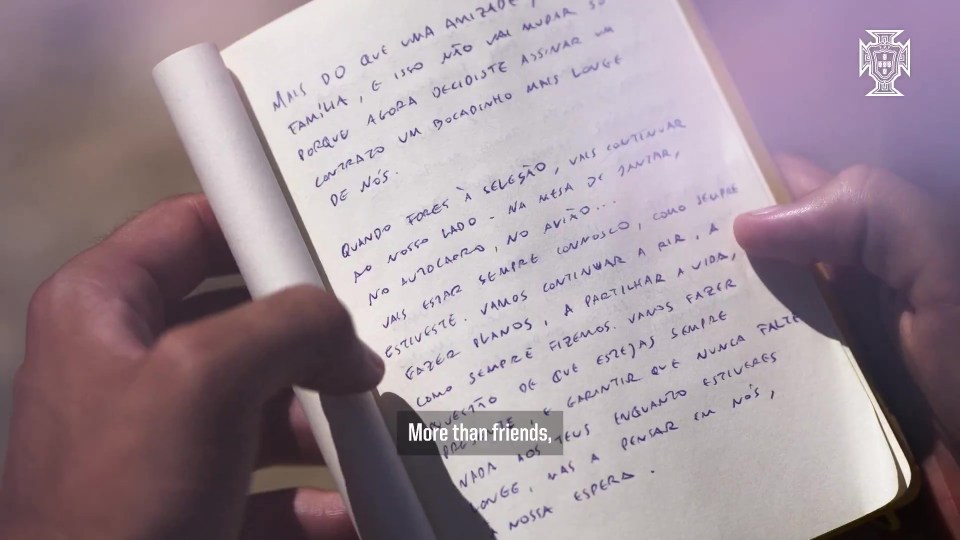 MAIS DO QUE UMA AMIZADE,
FAMÍLIA, E ISSO NÃO VAI MUDAR SÓ
PORQUE AGORA DECIDISTE ASSINAR UM
CONTRATO UM BOCADINHO MAIS LONGE
DE NÓS.
QUANDO FORES À SELEÇÃO, VAIS CONTINUAR
AO NOSSO LADO - NA MESA DE JANTAR,
NO AUTOCARRO, NO AVIÃO...
VAIS ESTAR SEMPRE CONNOSCO, COMO SEMPRE
ESTIVESTE. VAMOS CONTINUAR A RIR, A
FAZER PLANOS, A PARTILHAR A VIDA,
COMO SEMPRE FIZEMOS. VAMOS FAZER
QUESTÃO DE QUE ESTEJAS SEMPRE
E GARANTIR QUE NUNCA FALTE
More than friends,
NADA AOS TEUS ENQUANTO ESTIVERES
LONGE, MAS A PENSAR EM NÓS,
NOSSA ESPERA.